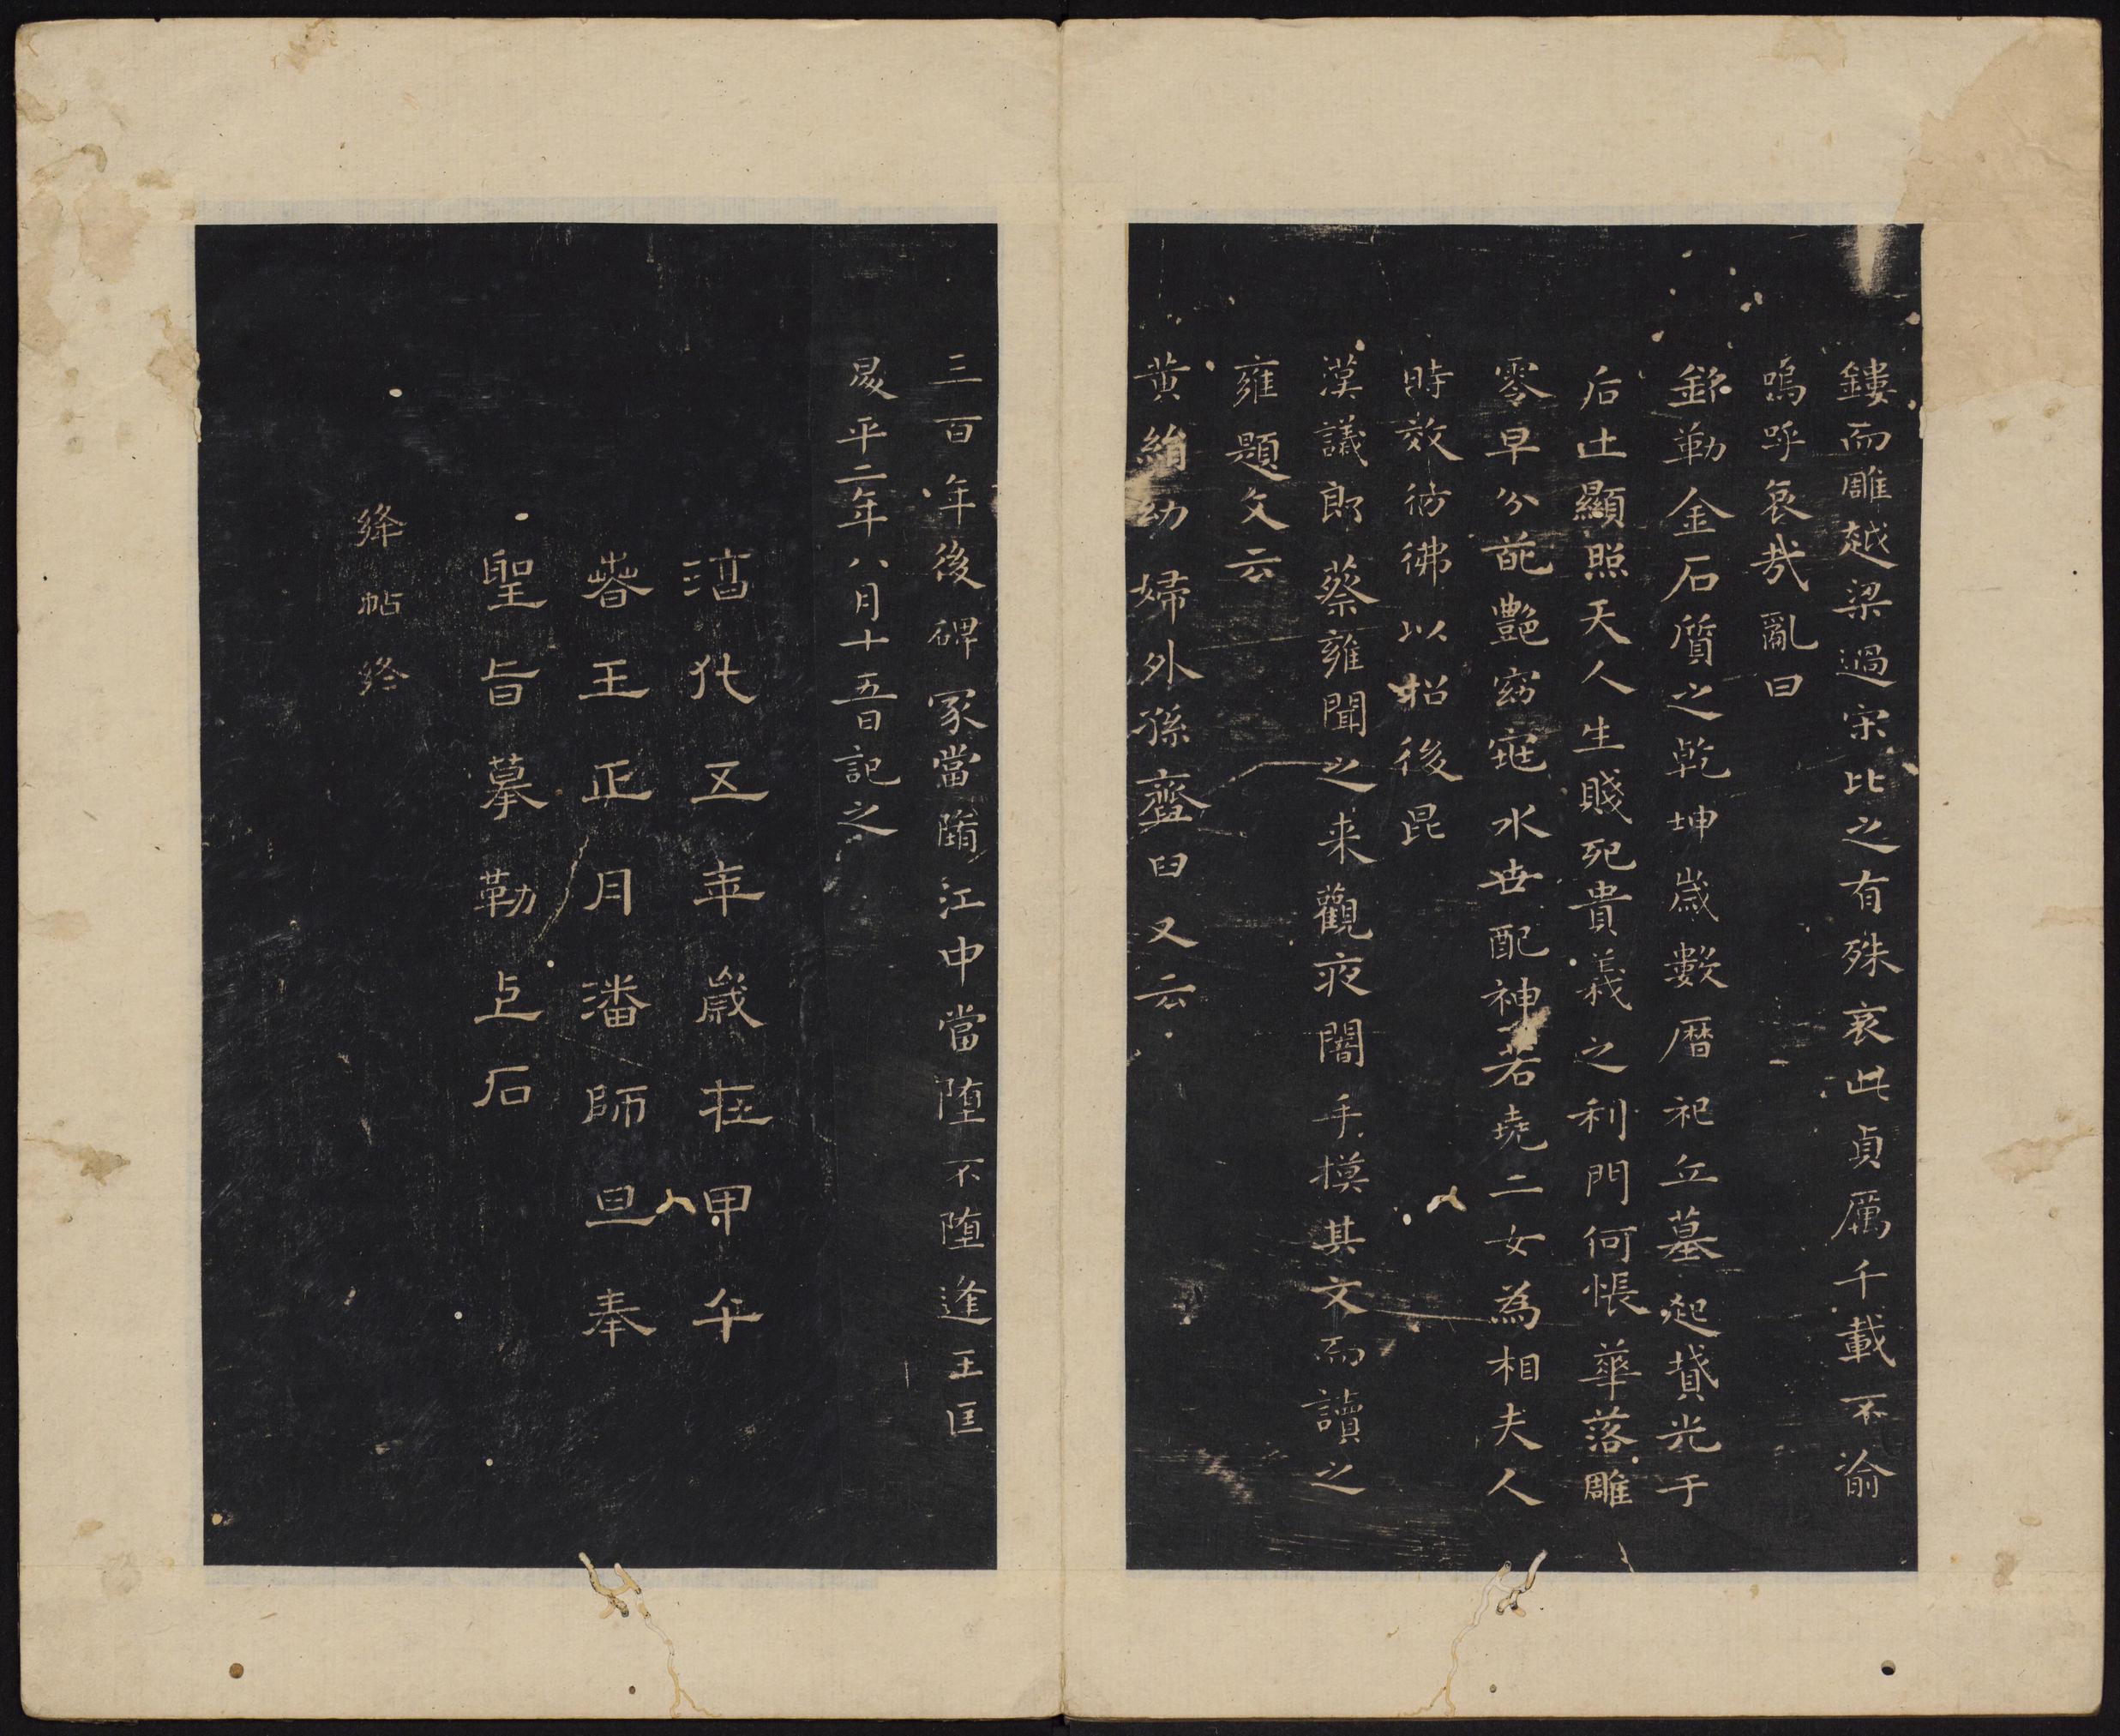 鏤而雕越梁過宋比之有殊哀此貞厲千載不渝
嗚呼哀哉亂曰
銘勒金石質之乾坤歲數曆祀丘墓起墳光于
后土顯照天人生賤死貴義之利門何悵華落雕
零早分葩艷窈窕永世配神若堯二女為相夫人
時效彷彿以招後昆
漢議郎蔡雍聞之来觀夜闇手摸其文而讀之
雍題文云
黃絹幼婦外孫齏臼又云
三百年後碑冢當墮江中當墮不墮逢王匡
昇平二年八月十五日記之
淳化五年歲在甲午
春王正月潘師旦奉
聖旨摹勒上石
絳帖終